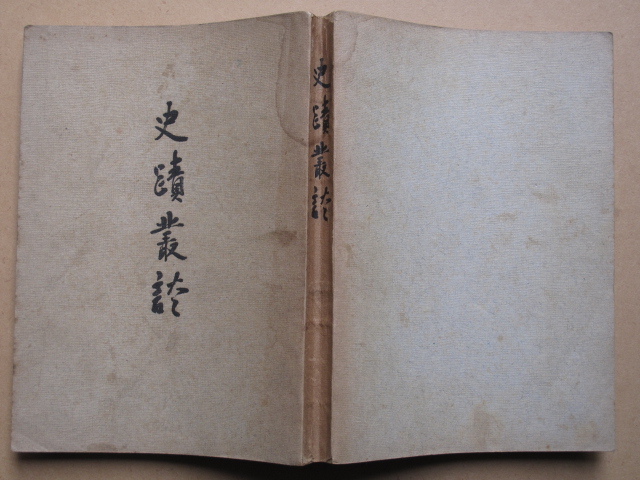 史蹟叢談
史蹟叢談